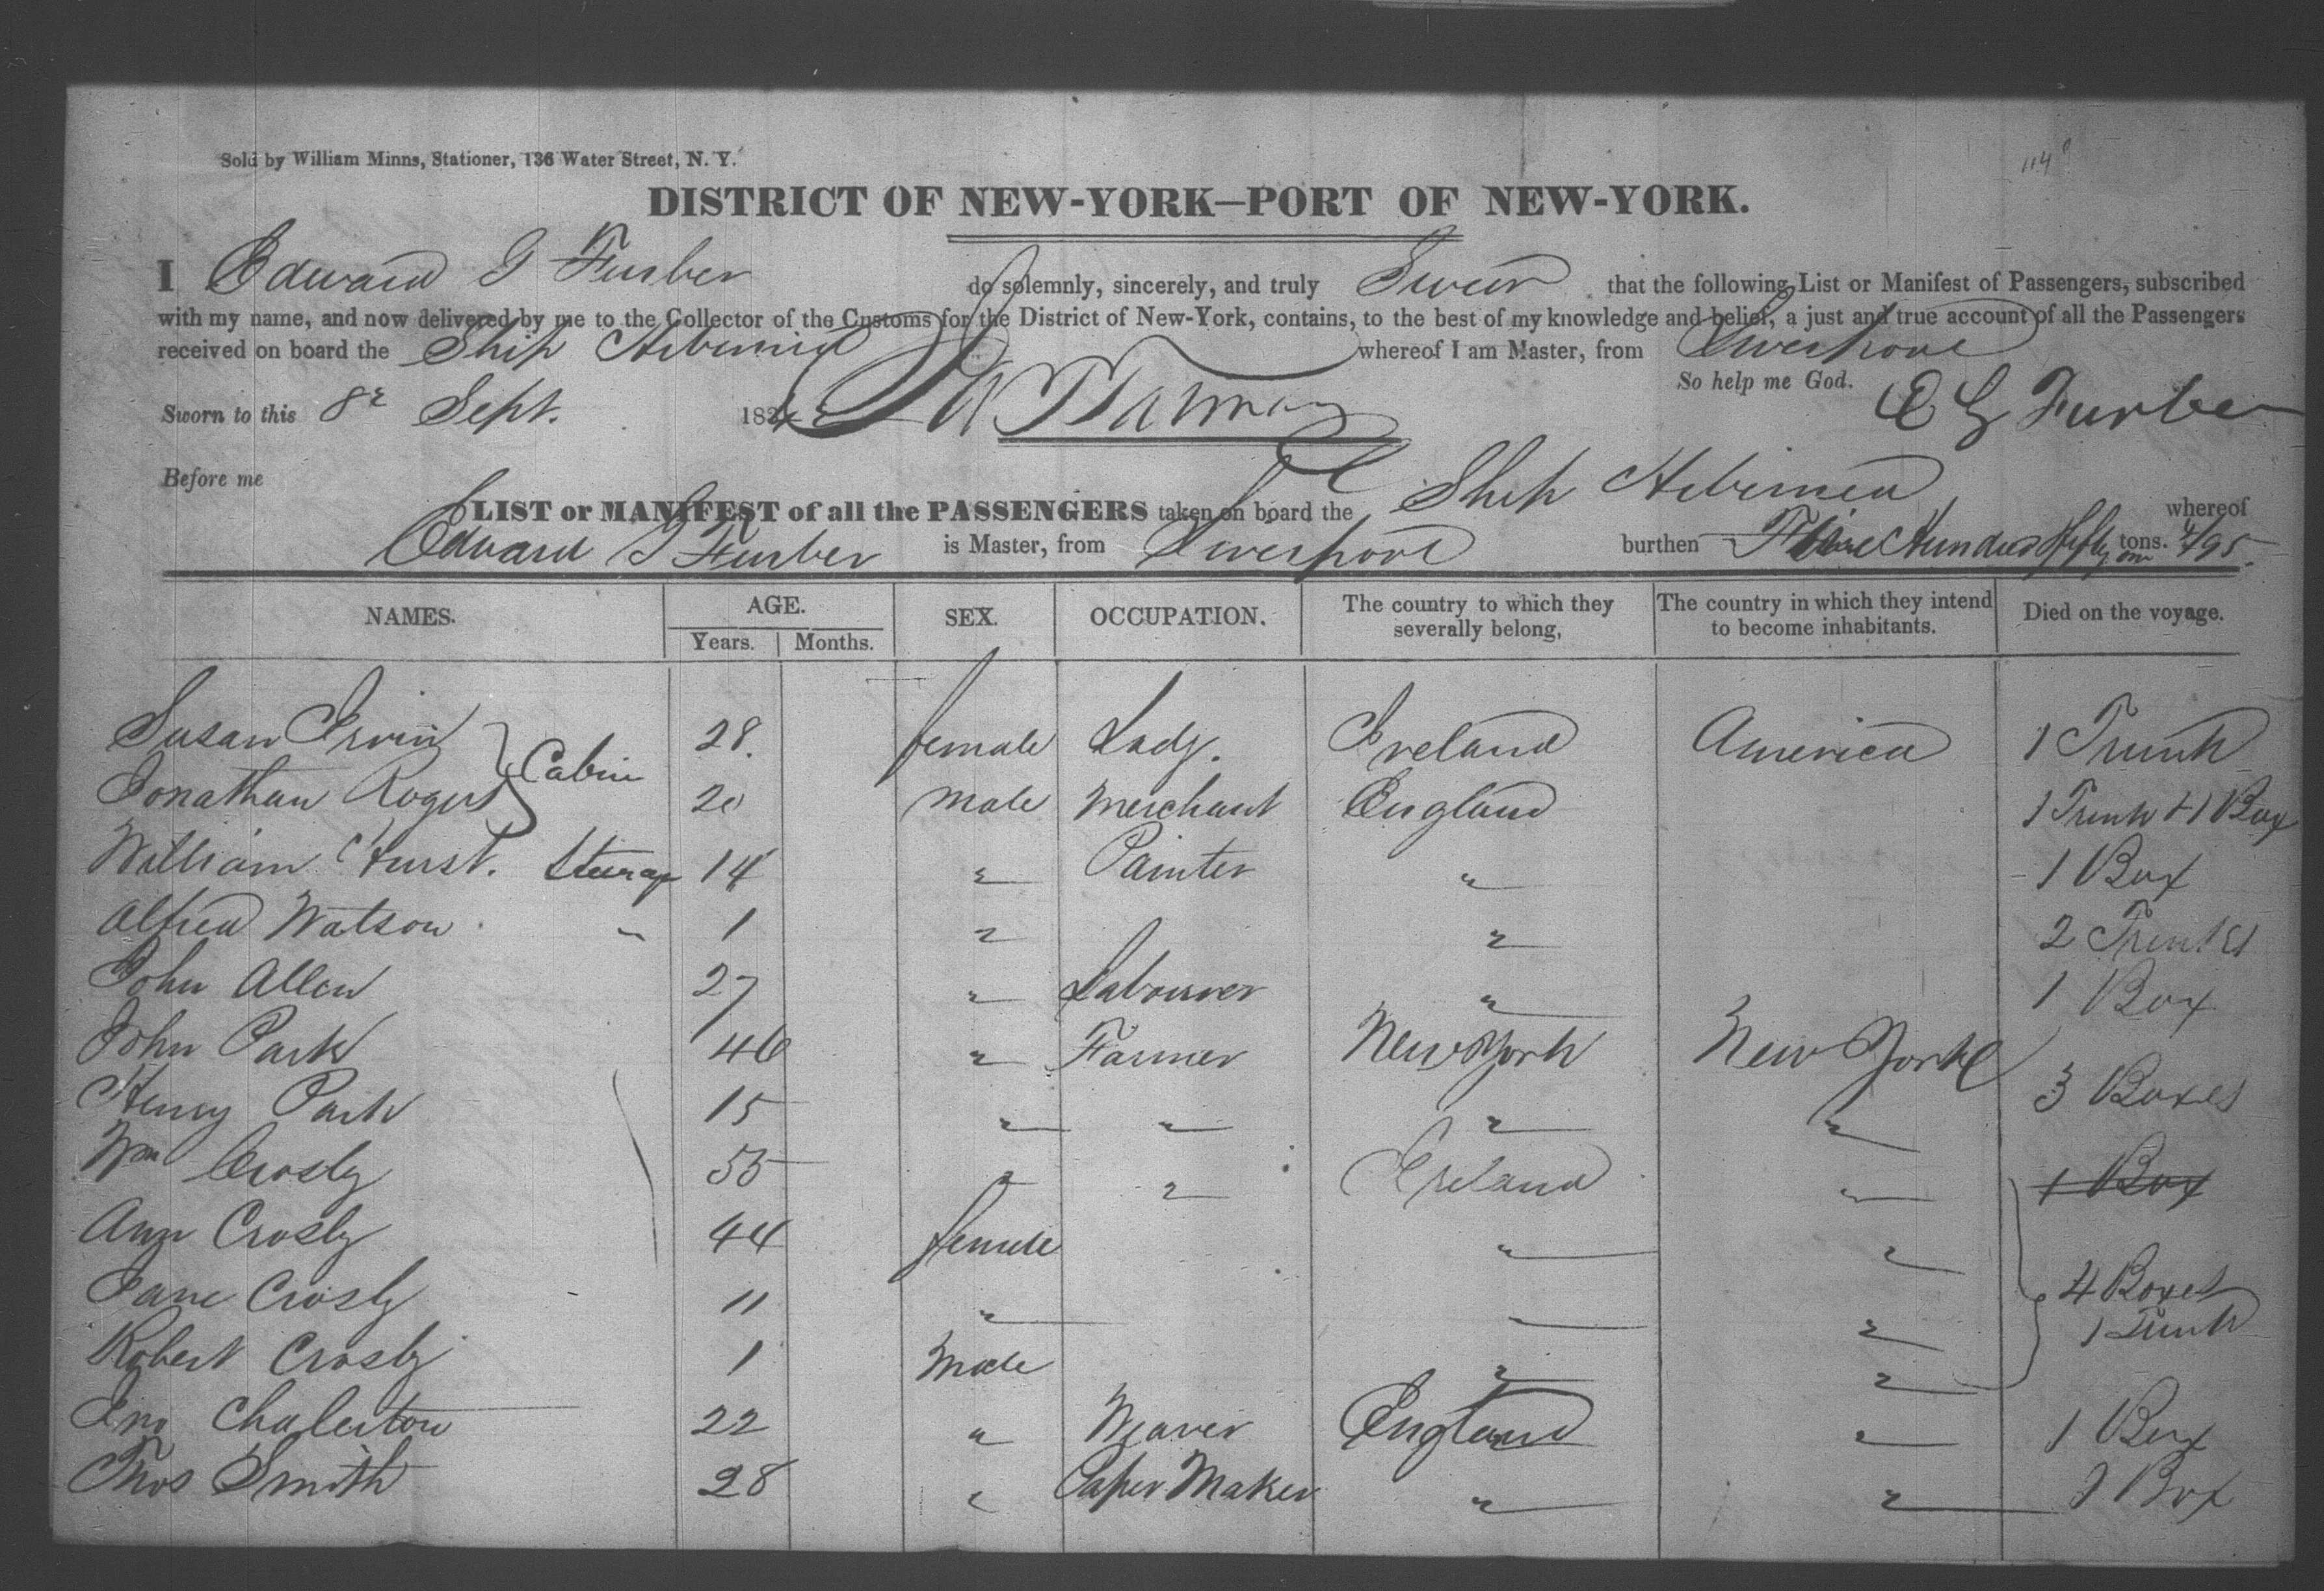 Sold by William Minns, Stationer, 136 Water Street, N. Y.
114
DISTRICT OF NEW-YORK—PORT OF NEW-YORK.
I Edward G Furber do solemnly, sincerely, and truly Swear that the following List or Manifest of Passengers, subscribed
with my name, and now delivered by me to the Collector of the Customs for the District of New-York, contains, to the best of my knowledge and belief, a just and true account of all the Passengers
received on board the Ship Hibernia whereof I am Master, from Liverpool
So help me God. E G Furber
Sworn to this 8 Sept. 184
Before me
LIST or MANIFEST of all the PASSENGERS taken on board the Ship Hibernia whereof
Edward G Furber is Master, from Liverpool burthen Five Hundred fifty one tons. 4/95
NAMES. AGE. SEX. OCCUPATION. The country to which they severally belong, The country in which they intend to become inhabitants. Died on the voyage.
Years. Months.
Susan Irvin } Cabin 28. female Lady. Ireland America 1 Trunk
Jonathan Rogers } 20 male Merchant England 1 Trunk + 1 Box
William Hurst. Steerage 14 " Painter " 1 Box
Alfred Watson " 1 " " 2 Trunks
John Allen 27 " Labourer " 1 Box
John Park 46 " Farmer New York New York
Henry Park 15 " " " " 3 Boxes
Wm Crosby 55 " " Ireland " 1 Box
Ann Crosby 44 female " "
Jane Crosby 11 " " " 4 Boxes
Robert Crosby 1 Male " " 1 Trunk
Jno Charleton 22 " Weaver England " 1 Box
Thos Smith 28 " Paper Maker " " 1 Box